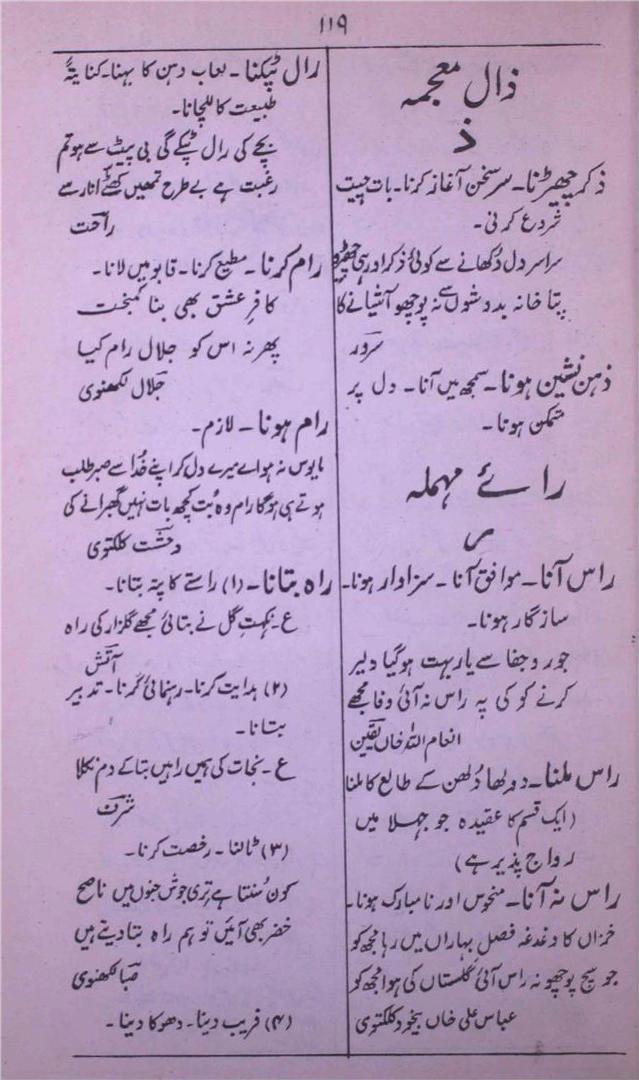 ۱۱۹
ذال معجمہ
ذ
ذکر چھیڑنا۔ سر سخن آغاز کرنا۔ بات چیت
شروع کرنی۔
سراسر دل دُکھانے سے کوئی ذکر اور ہی چھیڑو
پتا خانہ بدوشوں سے نہ پوچھو آشیانے کا
سرور
ذہن نشین ہونا۔ سمجھ میں آنا۔ دل پر
متمکن ہونا۔
رائے مہملہ
ر
راس آنا۔ موافق آنا۔ سزاوار ہونا۔
سازگار ہونا۔
جور و جفا سے یار بہت ہو گیا دلیر
کرنے کو کی پہ راس نہ آئی وفا مجھے
انعام اللہ خاں یقین
راس ملنا۔ دولھا دُلھن کے طالع کا ملنا
(ایک قسم کا عقیدہ جو جہلا میں
رواج پذیر ہے)
راس نہ آنا۔ منحوس اور نا مبارک ہونا۔
خزاں کا دغدغہ فصل بہاراں میں رہا مجھ کو
جو سچ پوچھو نہ راس آئی گلستاں کی ہوا مجھ کو
عباس علی خاں بیخود کلکتوی
رال ٹپکنا۔ لعاب دہن کا بہنا۔ کنایتہً
طبیعت کا للچانا۔
بچے کی رال ٹپکے گی بی پیٹ سے ہو تم
رغبت ہے بے طرح تمھیں کھٹے انار سے
راحت
رام کرنا۔ مطیع کرنا۔ قابو میں لانا۔
کافرِ عشق بھی بنا کمبخت
پھر نہ اس کو جلال رام کیا
جلال لکھنوی
رام ہونا۔ لازم۔
مایوس نہ ہو اے میرے دل کر اپنے خُدا سے صبر طلب
ہوتے ہی ہو گا رام وہ بُت کچھ بات نہیں گھبرانے کی
وحشت کلکتوی
راہ بتانا۔ (۱) راستے کا پتہ بتانا۔
ع۔ نکہتِ گل نے بتائی مجھے گلزار کی راہ
آتش
(۲) ہدایت کرنا۔ رہنمائی کرنا۔ تدبیر
بتانا۔
ع۔ نجات کی ہمیں راہیں بتا کے دم نکلا
شرف
(۳) ٹالنا۔ رخصت کرنا۔
کون سُنتا ہے تری جوشِ جنوں میں ناصح
خضر بھی آئیں تو ہم راہ بتا دیتے ہیں
صبا لکھنوی
(۴) فریب دینا۔ دھوکا دینا۔